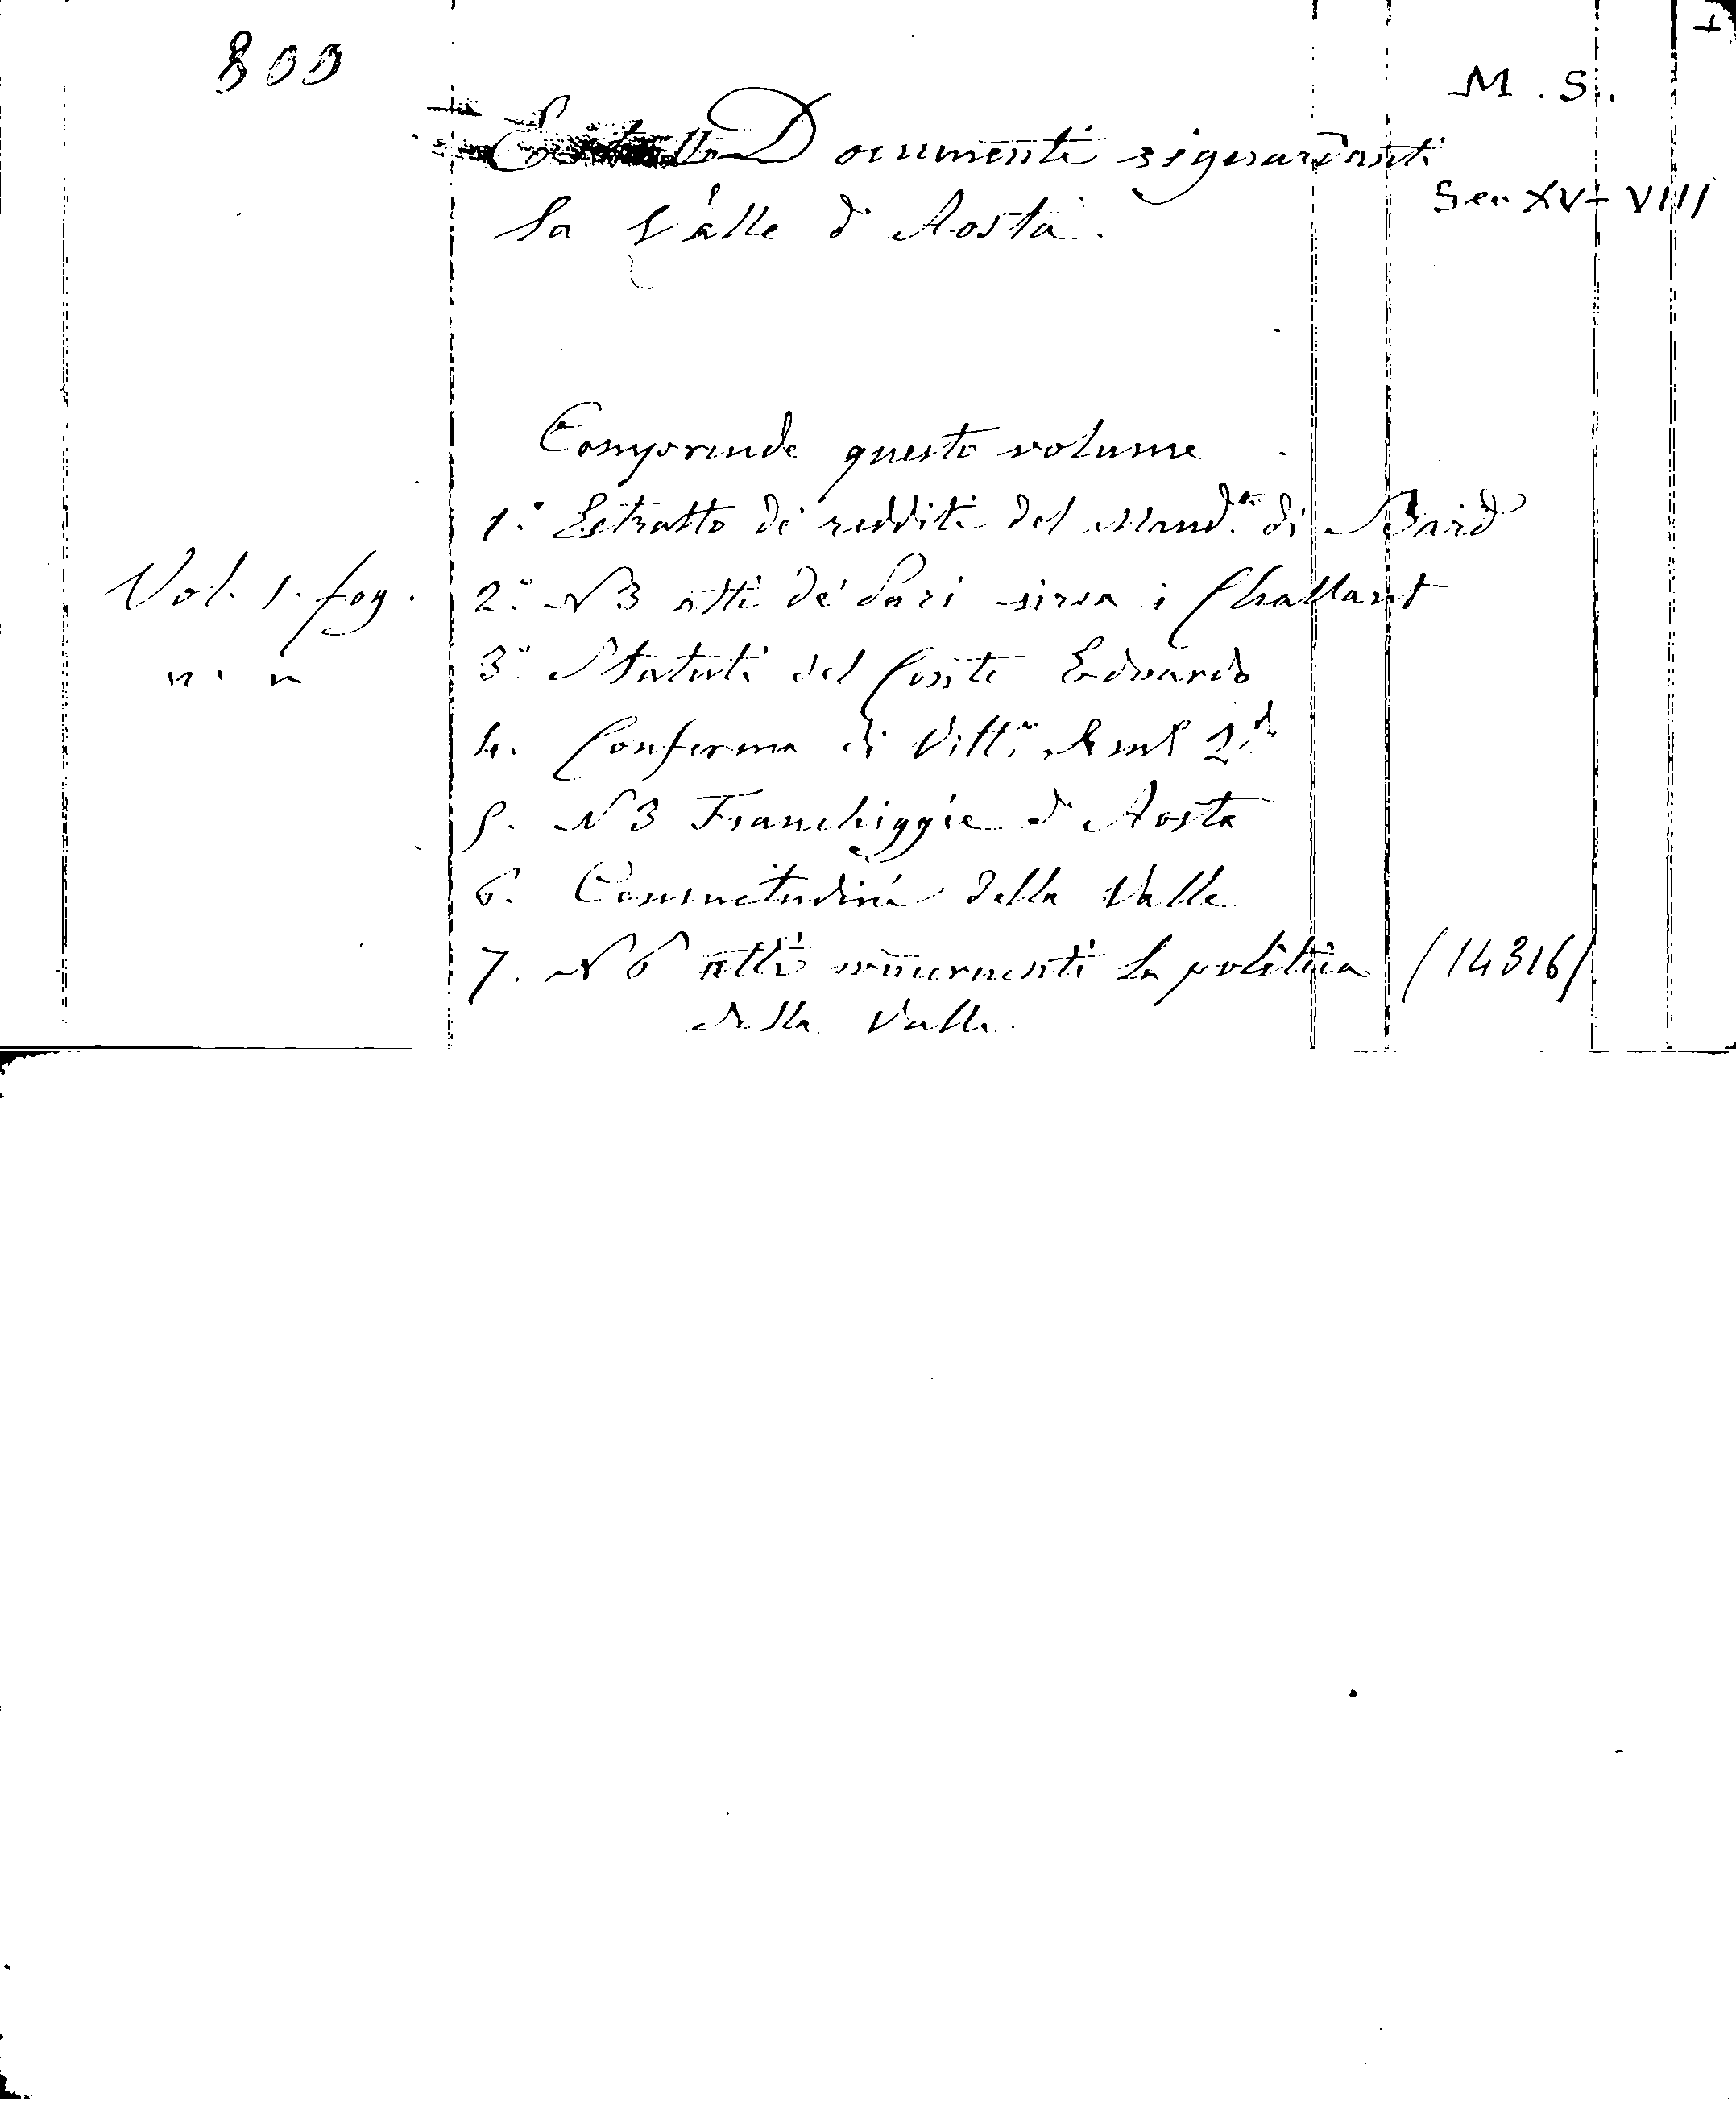 800
M. S.
Documenti riguardanti
Sec XV-XVIII
la Valle d'Aosta.
Comprende questo volume
1.° Estratto de' redditi del Mand.to di Bard
Vol. 1. fog.
2.° N 3 atti de' Pari circa i Challant
n. n
3.° Statuti del Conte Edoardo
4. Conferma di Vitt.o Am.o 2.do
5. N 3 Franchiggie d'Aosta
6. Consuetudini della Valle
7. N 6 atti concernenti la politica (14316)
della Valle.